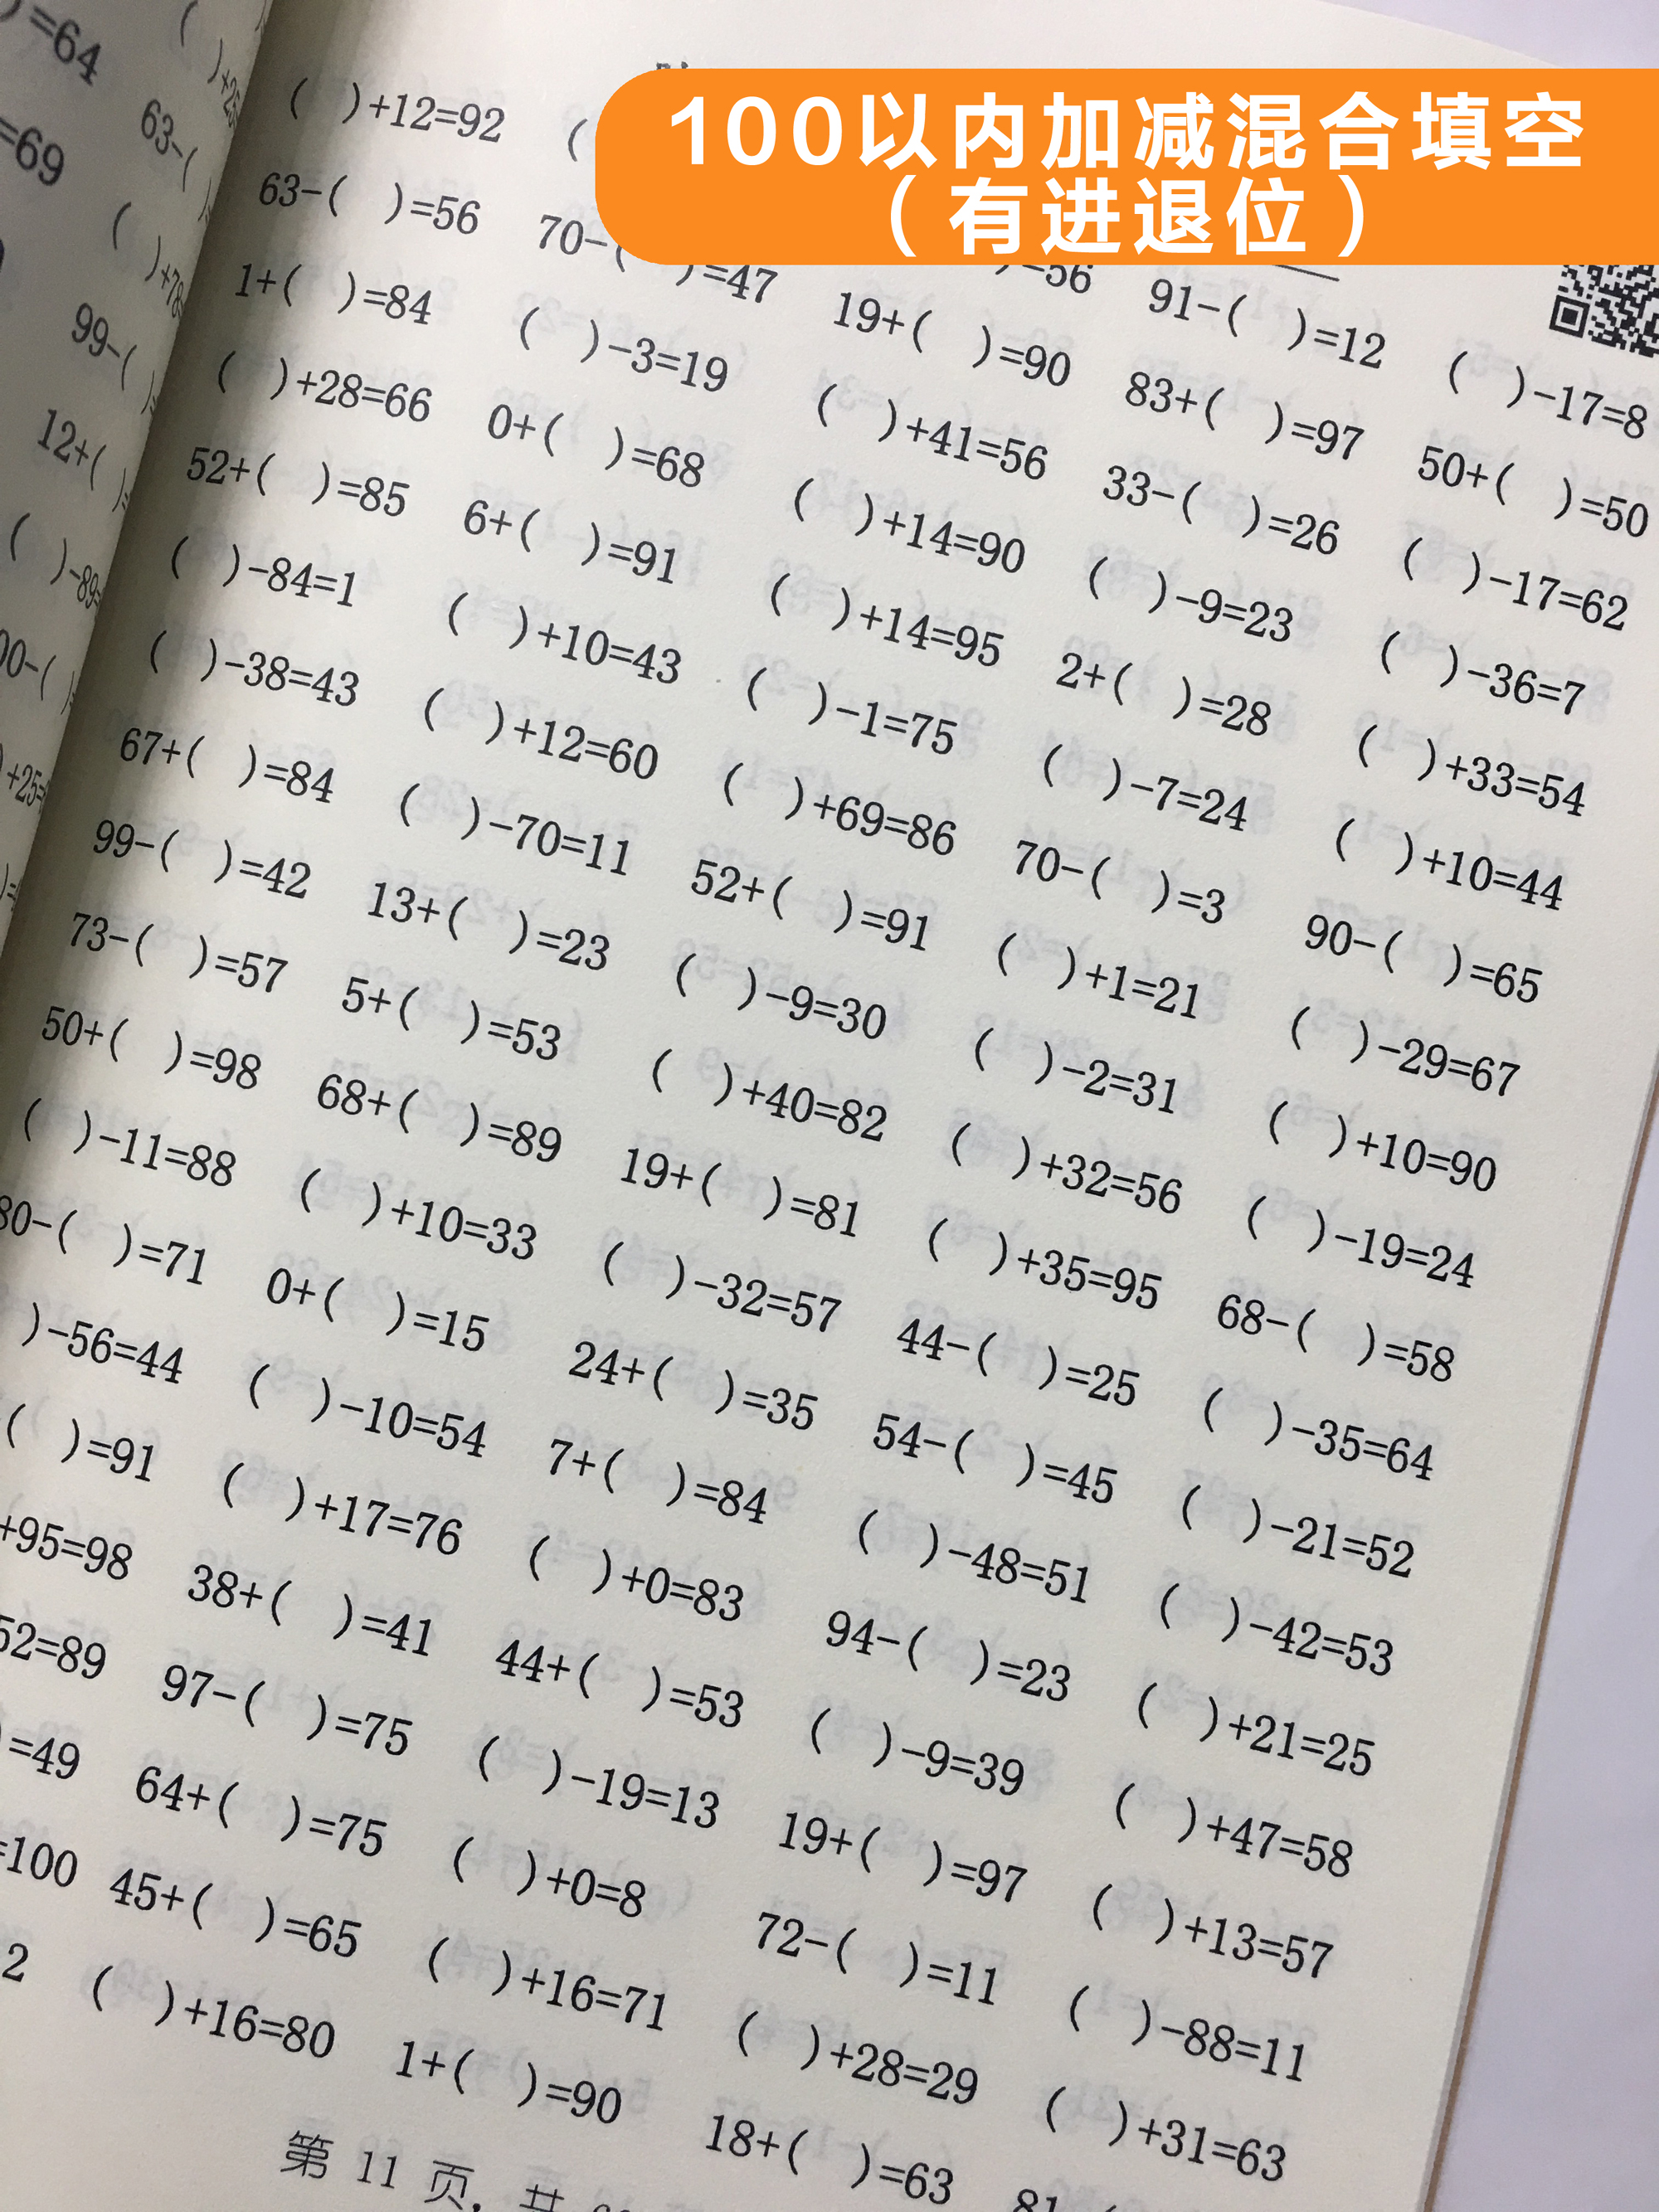 100以内加减混合填空
（有进退位）
)=64
=69
63-(
99-(
12+(
( )-89=
( )+12=92 ( 56 91-( )=12 ( )-17=8
63-( )=56 70-( )=47 19+( )=90 83+( )=97 50+( )=50
1+( )=84 ( )-3=19 ( )+41=56 33-( )=26 ( )-17=62
( )+28=66 0+( )=68 ( )+14=90 ( )-9=23 ( )-36=7
52+( )=85 6+( )=91 ( )+14=95 2+( )=28 ( )+33=54
( )-84=1 ( )+10=43 ( )-1=75 ( )-7=24 ( )+10=44
( )-38=43 ( )+12=60 ( )+69=86 70-( )=3 90-( )=65
67+( )=84 ( )-70=11 52+( )=91 ( )+1=21 ( )-29=67
99-( )=42 13+( )=23 ( )-9=30 ( )-2=31 ( )+10=90
73-( )=57 5+( )=53 ( )+40=82 ( )+32=56 ( )-19=24
50+( )=98 68+( )=89 19+( )=81 ( )+35=95 68-( )=58
( )-11=88 ( )+10=33 ( )-32=57 44-( )=25 ( )-35=64
80-( )=71 0+( )=15 24+( )=35 54-( )=45 ( )-21=52
)-56=44 ( )-10=54 7+( )=84 ( )-48=51 ( )-42=53
( )=91 ( )+17=76 ( )+0=83 94-( )=23 ( )+21=25
+95=98 38+( )=41 44+( )=53 ( )-9=39 ( )+47=58
52=89 97-( )=75 ( )-19=13 19+( )=97 ( )+13=57
)=49 64+( )=75 ( )+0=8 72-( )=11 ( )-88=11
=100 45+( )=65 ( )+16=71 ( )+28=29 ( )+31=63
2 ( )+16=80 1+( )=90 18+( )=63
第 11 页，共